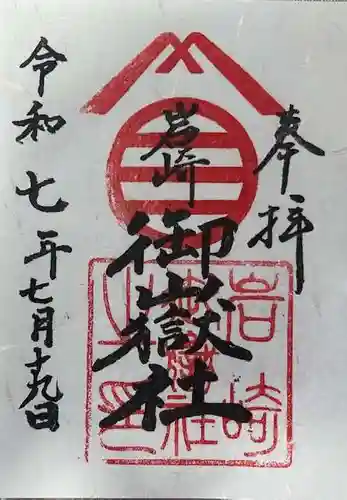 奉拝
岩崎
御嶽社
令和七年七月十九日